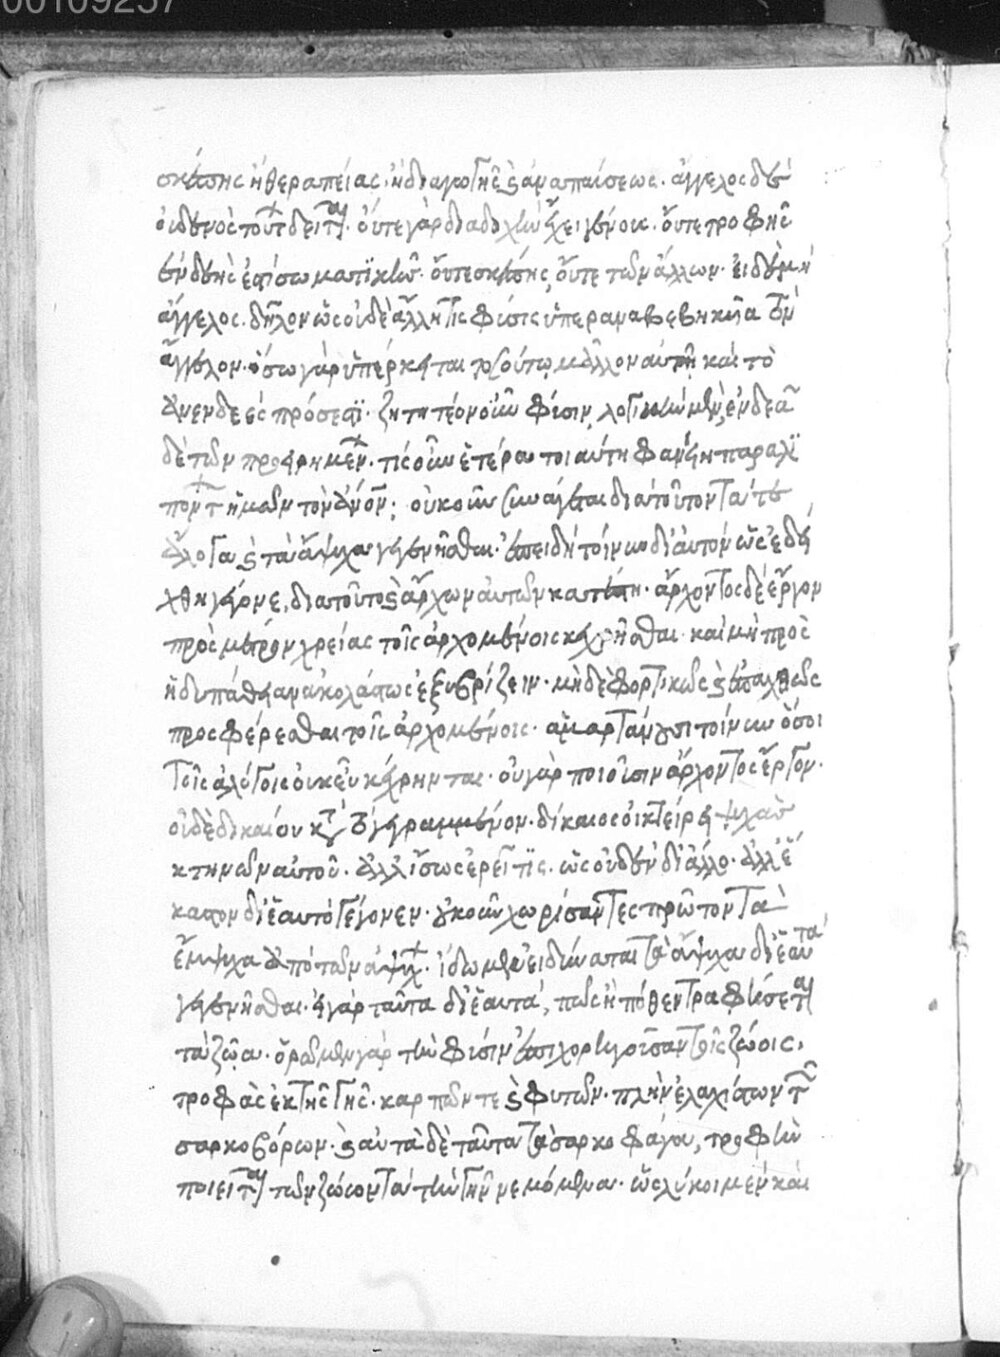 00109257
σκέπης ἢ θεραπείας, ἢ διαγωγῆς καὶ ἀναπαύσεως. ἄγγελος δὲ
οὐδενὸς τούτων δεῖται. οὔτε γὰρ διαδοχὴν ἔχει γένους. οὔτε τροφῆς
ἐνδεὴς ἐστὶ σωματικῶν. οὔτε σκέπης, οὔτε τῶν ἄλλων. εἰ δὲ μὴ
ἄγγελος. δῆλον ὡς οὐδὲ ἄλλη τις φύσις ὑπεραναβεβηκυῖα τὸν
ἄγγελον. ὅσω γὰρ ὑπέρκειται τοσούτω μᾶλλον αὐτῆ καὶ τὸ
ἀνενδεὲς πρόσεστι. ζητητέον οὖν φύσιν λογικὴν μὲν, ἐνδεᾶ
δὲ τῶν προειρημένων. τίς οὖν ἑτέρα τοιαύτη φανείη παραλι
πόντων ἡμῶν τὸν ἄνθρωπον; οὐκοῦν συνάγεται διὰ τοῦτον τά τε
ἄλογα καὶ τὰ ἄψυχα γεγενῆσθαι. ἐπειδὴ τοίνυν δι' αὐτὸν ὡς ἐδεί
χθη γέγονε, διατοῦτο καὶ ἄρχων αὐτῶν κατέστη. ἄρχοντος δὲ ἔργον
πρὸς μέτρον χρείας τοῖς ἀρχομένοις κεχρῆσθαι. καὶ μὴ πρὸς
ἡδυπάθειαν ἀκολάστως ἐξυβρίζειν. μὴ δὲ φορτικῶς καὶ ἐπαχθῶς
προσφέρεσθαι τοῖς ἀρχομένοις. ἁμαρτάνουσι τοίνυν ὅσοι
τοῖς ἀλόγοις οὐκ εὖ κέχρηνται. οὐ γὰρ ποιοῦσιν ἄρχοντος ἔργον.
οὐδὲ δικαίου κατὰ τὸ γεγραμμένον. δίκαιος οἰκτείρει ψυχὰς
κτηνῶν αὐτοῦ. ἀλλ' ἴσως ἐρεῖ τις. ὡς οὐδὲν δι' ἄλλο. ἀλλ' ἕ
καστον δι' ἑαυτὸ γέγονεν. οὐκοῦν χωρίσαντες πρῶτον τὰ
ἔμψυχα ἀπὸ τῶν ἀψύχων. ἴδωμεν εἰ δύναται τὰ ἄψυχα δι' ἑαυτὰ
γεγενῆσθαι. εἰ γὰρ ταῦτα δι' ἑαυτά, πῶς ἢ πόθεν τραφήσεται
τὰ ζῶα. ὁρῶμεν γὰρ τὴν φύσιν ἐπιχορηγοῦσαν τοῖς ζώοις,
τροφὰς ἐκ τῆς γῆς. καρπῶν τε καὶ φυτῶν. πλὴν ἐλαχίστων τῶν
σαρκοβόρων. καὶ αὐτὰ δὲ ταῦτα τὰ σαρκοφάγα, τροφὴν
ποιεῖται τῶν ζώων τὰ τὴν γῆν νεμόμενα. ὡς λύκοι μὲν καὶ